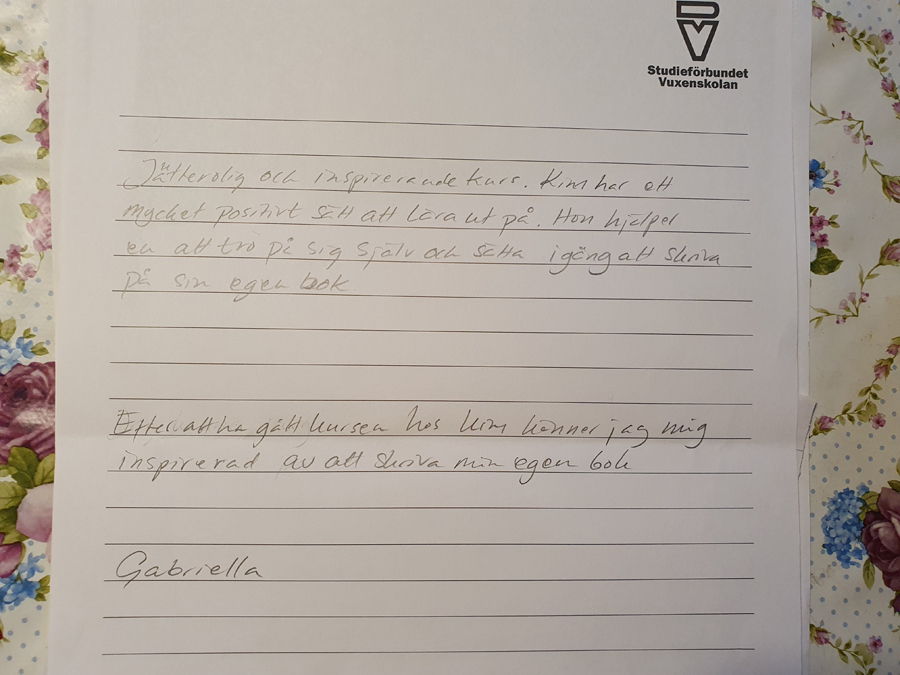 Studieförbundet
Vuxenskolan
Jätterolig och inspirerande kurs. Kim har ett
mycket positivt sätt att lära ut på. Hon hjälper
en att tro på sig själv och sätta igång att skriva
på sin egen bok
Efter att ha gått kursen hos Kim känner jag mig
inspirerad av att skriva min egen bok
Gabriella